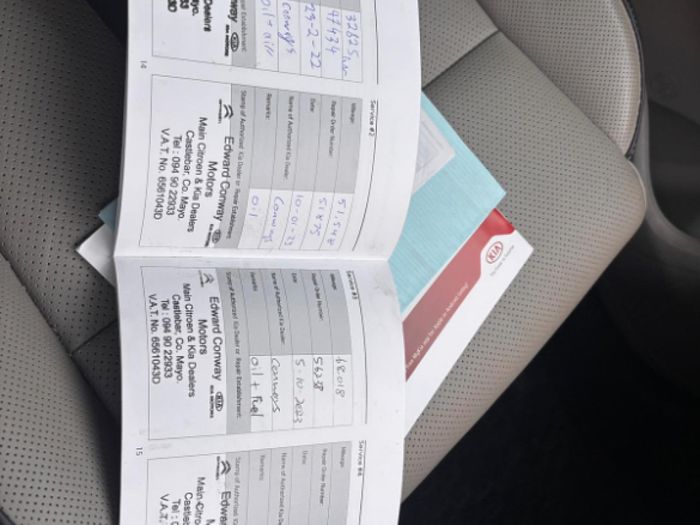 32825 km
47434
29-2-22
Conways
oil + air
KIA
14
Service #2
Mileage:
51,542
Repair Order Number:
51875
Date:
10-01-23
Name of Authorized Kia Dealer:
Conways
Remarks:
oil
Stamp of Authorized Kia Dealer or Repair Establishment:
Edward Conway KIA
Motors
Main Citroen & Kia Dealers
Castlebar, Co. Mayo.
Tel : 094 90 22933
V.A.T. No. 6561043D
Service #3
Mileage:
68018
Repair Order Number:
56238
Date:
5.10.2023
Name of Authorized Kia Dealer:
Conways
Remarks:
oil + fuel
Stamp of Authorized Kia Dealer or Repair Establishment:
Edward Conway KIA
Motors
Main Citroen & Kia Dealers
Castlebar, Co. Mayo.
Tel : 094 90 22933
V.A.T. No. 6561043D
15
Service #4
Mileage:
Repair Order Number:
Date:
Name of Authorized Kia Dealer:
Remarks:
Stamp of Authorized
Main Citro
KIA